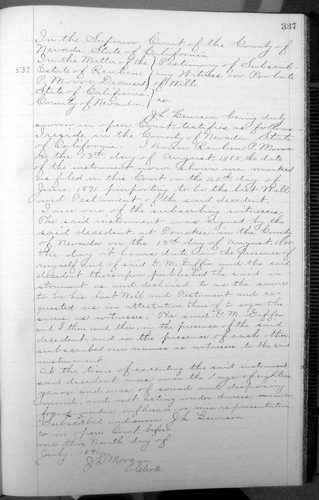 337
In the Superior Court of the County of
Nevada, State of California.
In the Matter of the Testimony of Subscrib
537 Estate of Reuben ing Witness on Probate
P. Moore, Deceased of Will.
State of California
County of Nevada ss.
being duly
sworn in open Court, testifies as follows:
I reside in the County of Nevada State
of California. I knew Reuben P. Moore
on the 13th day of August 1880, the date
of the instrument now shown me marked
as filed in this Court on the 20th day of
June 1891 purporting to be the last Will
and Testament of the said decedent.
I am one of the subscribing witnesses
The said instrument was signed by the
said decedent at Truckee in the County
of Nevada on the 13th day of August 1880,
the day it bears date in the presence of
myself and of said C. M. Giffen and the said
decedent thereupon published the said in
strument as and declared to us the same
to be his last Will and Testament and re-
quested us in attestation thereof to sign the
same as witnesses. The said C. M. Giffen
and I then and there, in the presence of the said
decedent and in the presence of each other
subscribed our names as witnesses to the said
instrument.
At the time of executing the said instrument
said decedent was over the age of eighteen
years and was of sound and disposing
mind, and not acting under duress, menace,
fraud, undue influence, or misrepresentation.
Subscribed and sworn
to in open Court before
me this day of
July, 1891
J. L. Morgan
Clerk.